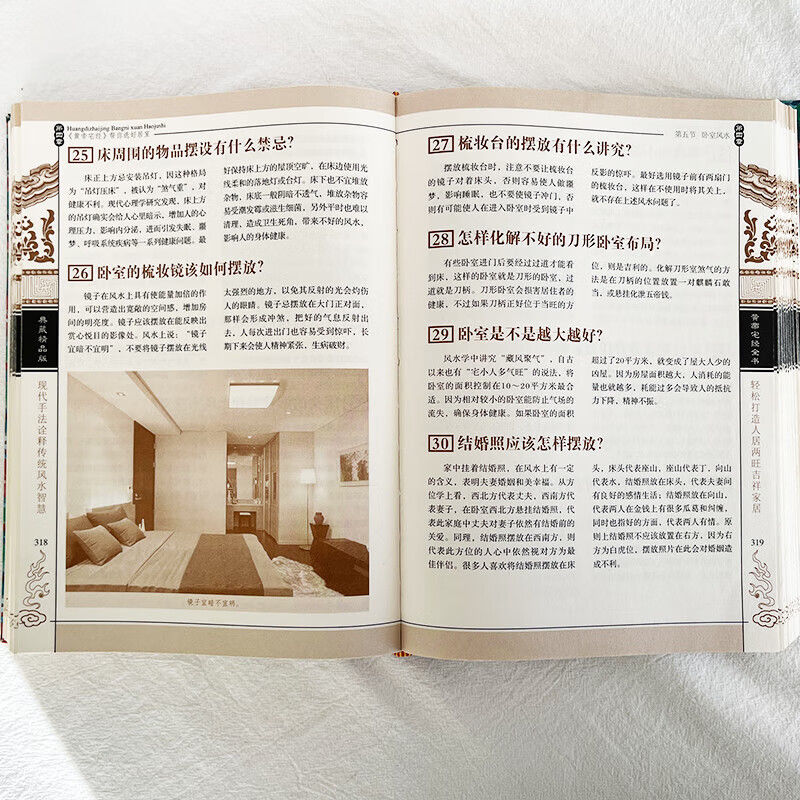 第四章
Huangdizhaijing Bangni xuan Haojushi
《黄帝宅经》帮你选好居室
25 床周围的物品摆设有什么禁忌?
床正上方忌安装吊灯，因这种格局
为“吊灯压床”，被认为“煞气重”，对
健康不利。现代心理学研究发现，床上方
的吊灯确实会给人心里暗示，增加人的心
理压力，影响内分泌，进而引发失眠、噩
梦、呼吸系统疾病等一系列健康问题。最
好保持床上方的屋顶空旷，在床边使用光
线柔和的落地灯或台灯。床下也不宜堆放
杂物，床底一般阴暗不透气，堆放杂物容
易受潮发霉或滋生细菌，另外平时也难以
清理，造成卫生死角，带来不好的风水，
影响人的身体健康。
26 卧室的梳妆镜该如何摆放?
镜子在风水上具有使能量加倍的作
用，可以营造出宽敞的空间感，增加房
间的明亮度。镜子应该摆放在能反映出
赏心悦目的影像处。风水上说：“镜子
宜暗不宜明”，不要将镜子摆放在光线
太强烈的地方，以免其反射的光会灼伤
人的眼睛。镜子忌摆放在大门正对面，
那样会形成冲煞，把好的气息反射出
去，人每次进出门也容易受到惊吓，长
期下来会使人精神紧张，生病破财。
镜子宜暗不宜明。
典藏精品版
现代手法诠释传统风水智慧
318
第五节 卧室风水
第四章
27 梳妆台的摆放有什么讲究?
摆放梳妆台时，注意不要让梳妆台
的镜子对着床头，否则容易使人做噩
梦，影响睡眠，也不要使镜子冲门，否
则有可能使人在进入卧室时受到镜子中
反影的惊吓。最好选用镜子前有两扇门
的梳妆台，这样在不使用时将其关上，
就不存在上述风水问题了。
28 怎样化解不好的刀形卧室布局?
有些卧室进门后要经过过道才能看
到床，这样的卧室就是刀形的卧室，过
道就是刀柄。刀形卧室会损害居住者的
健康，不过如果刀柄正好位于当旺的方
位，则是吉利的。化解刀形室煞气的方法
是在刀柄的位置放置一对麒麟石敢
当，或悬挂化泄五帝钱。
29 卧室是不是越大越好?
风水学中讲究“藏风聚气”，自古
以来也有“宅小人多气旺”的说法，将
卧室的面积控制在10～20平方米最合
适。因为相对较小的卧室能防止气场的
流失，确保身体健康。如果卧室的面积
超过了20平方米，就变成了屋大人少的
凶屋。因为房屋面积越大，人消耗的能
量也就越多，耗能过多会导致人的抵抗
力下降，精神不振。
30 结婚照应该怎样摆放?
家中挂着结婚照，在风水上有一定
的含义，表明夫妻婚姻和美幸福。从方
位学上看，西北方代表丈夫，西南方代
表妻子，在卧室西北方悬挂结婚照，代
表此家庭中丈夫对妻子依然有结婚前的
关爱。同理，结婚照摆放在西南方，则
代表此方位的人心中依然视对方为最
佳伴侣。很多人喜欢将结婚照摆放在床
头，床头代表座山，座山代表丁，向山
代表水，结婚照放在床头，代表夫妻间
有良好的感情生活；结婚照放在向山，
代表两人在金钱上有很多瓜葛和纠缠，
同时也指好的方面，代表两人有情。原
则上结婚照不应该放置在右方，因为右
方为白虎位，摆放照片在此会对婚姻造
成不利。
黄帝宅经全书
轻松打造人居两旺吉祥家居
319